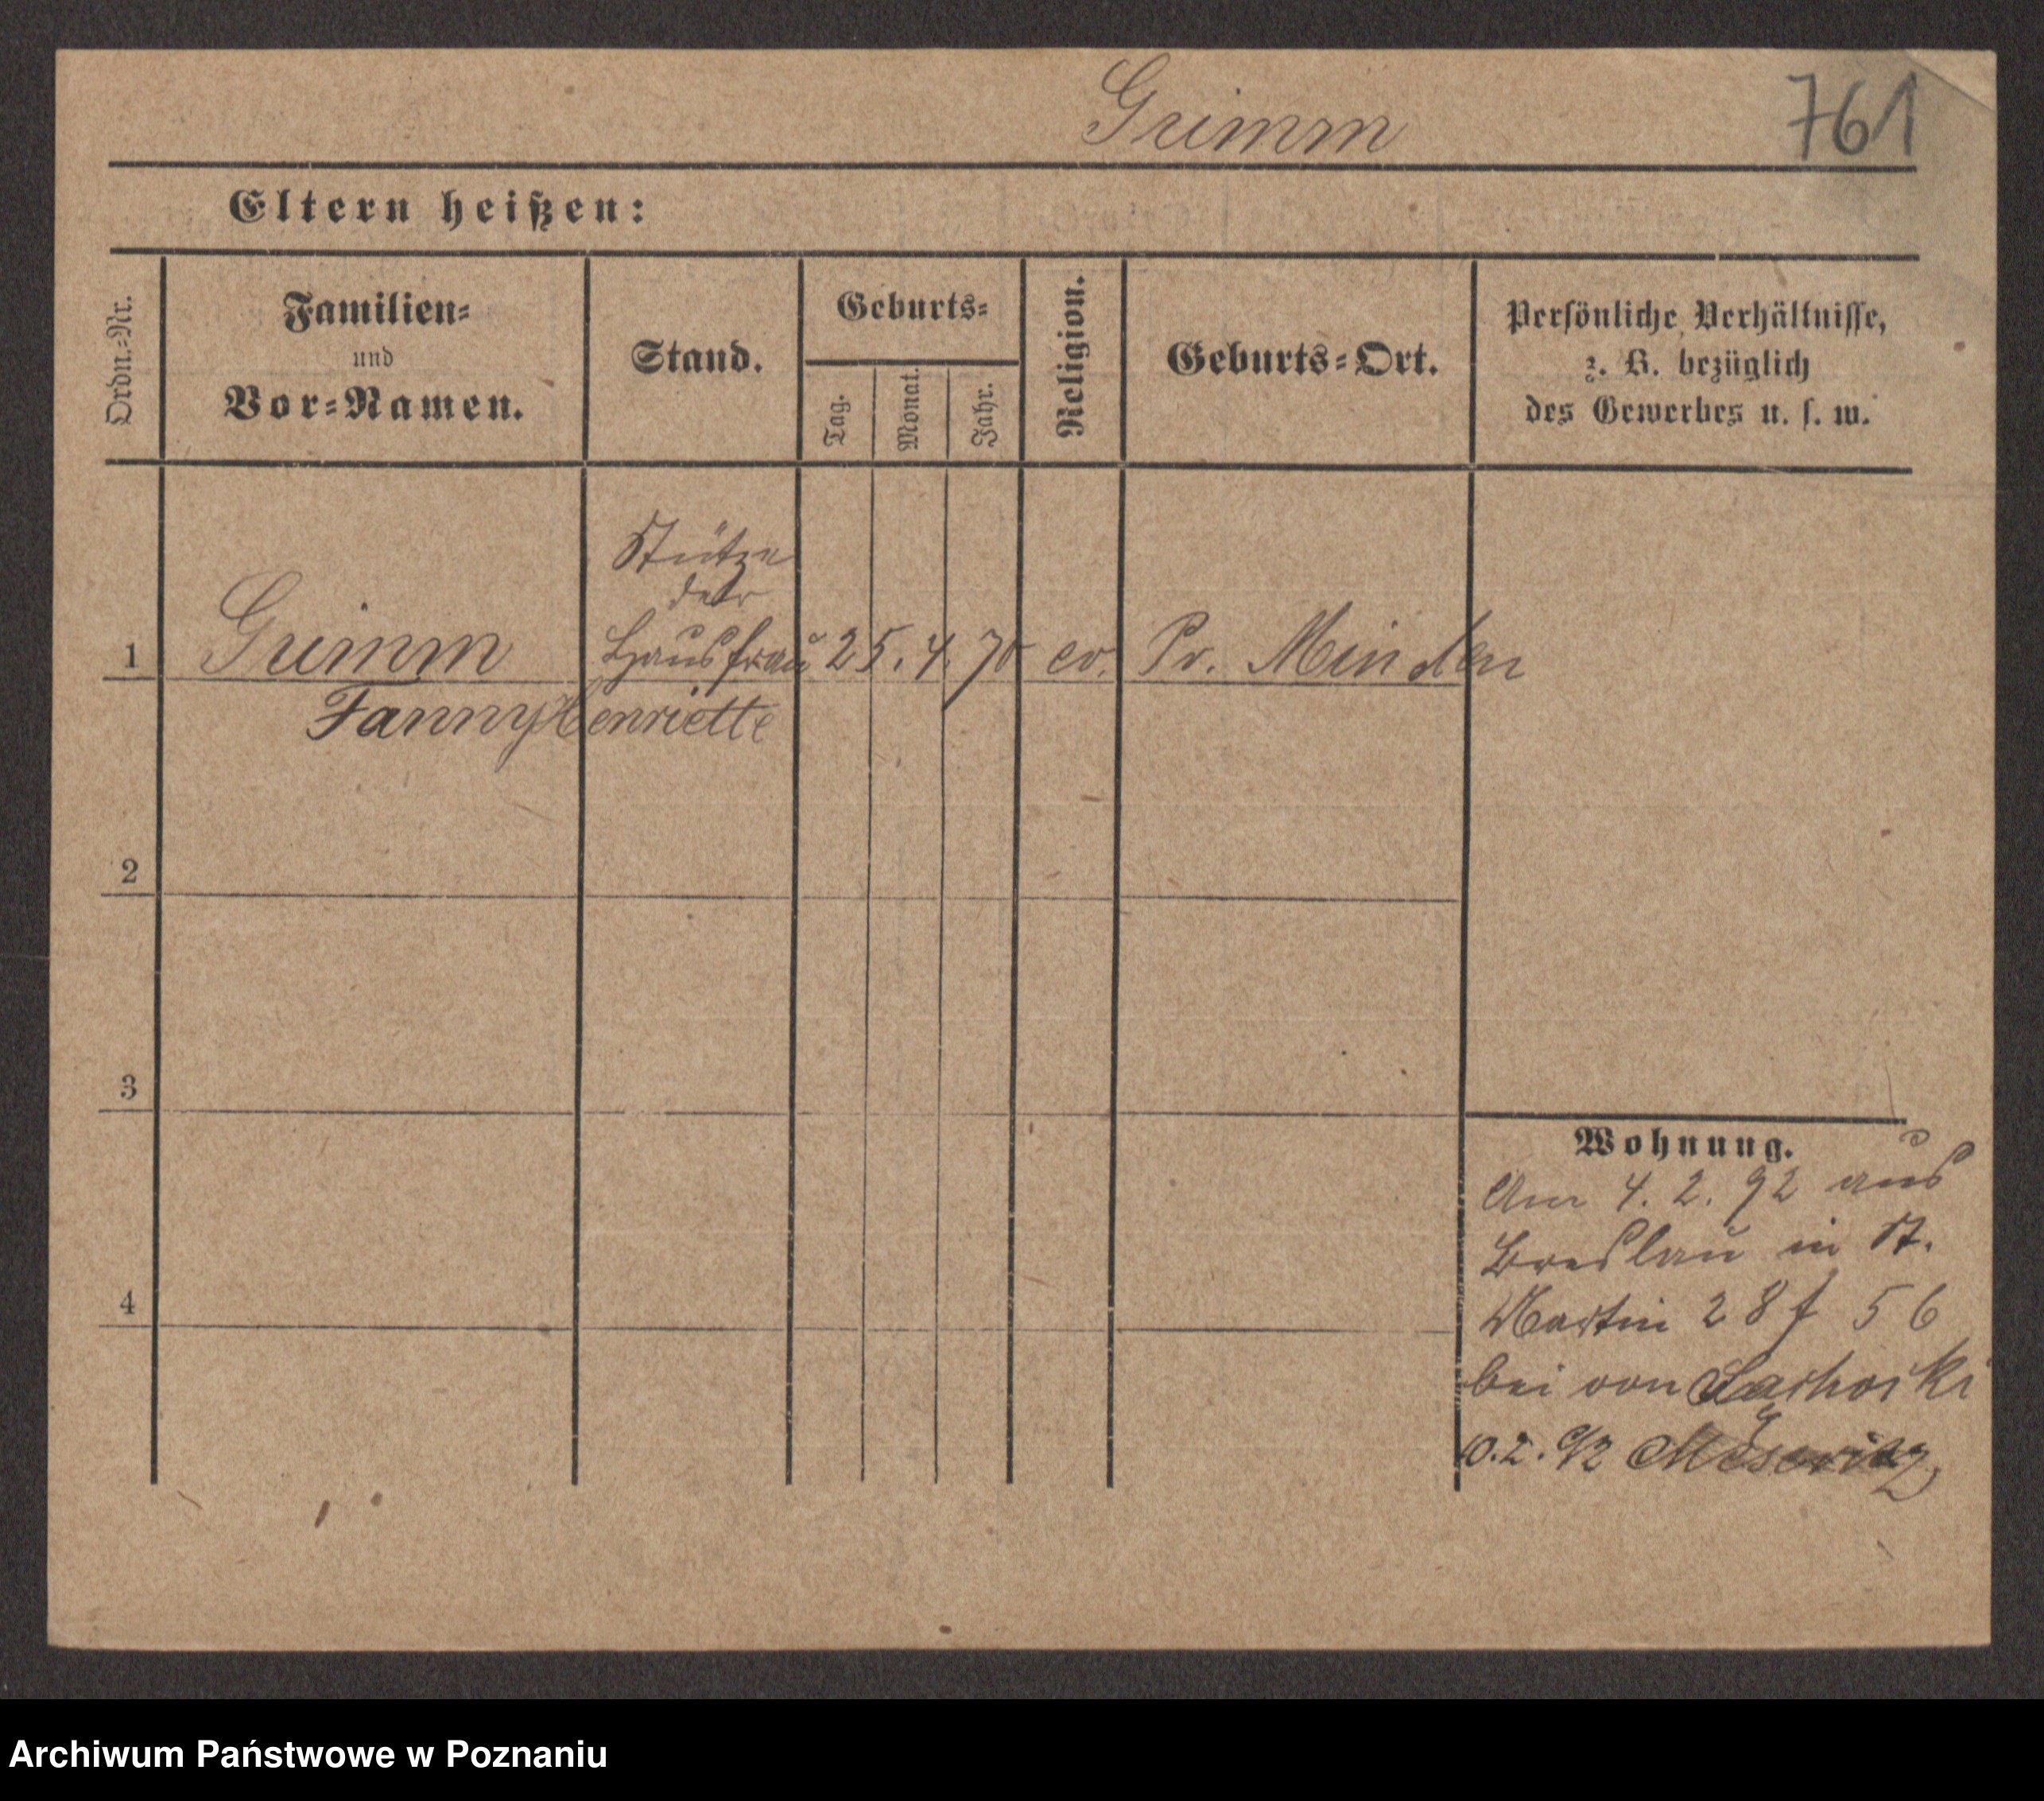 Grimm
761
Eltern heißen:
Ordn.-Nr.
Familien-
und
Vor-Namen.
Stand.
Geburts-
Tag.
Monat.
Jahr.
Religion.
Geburts-Ort.
Persönliche Verhältnisse,
z. B. bezüglich
des Gewerbes u. s. w.
Stütze
der
1 Grimm Hausfrau 25. 4. 70 ev. Pr. Minden
Fanny Henriette
2
3
4
Wohnung.
Am 4. 2. 92 aus
Breslau in St.
Martin 28 f 56
bei von
10. 2. 92 Meseritz
Archiwum Państwowe w Poznaniu